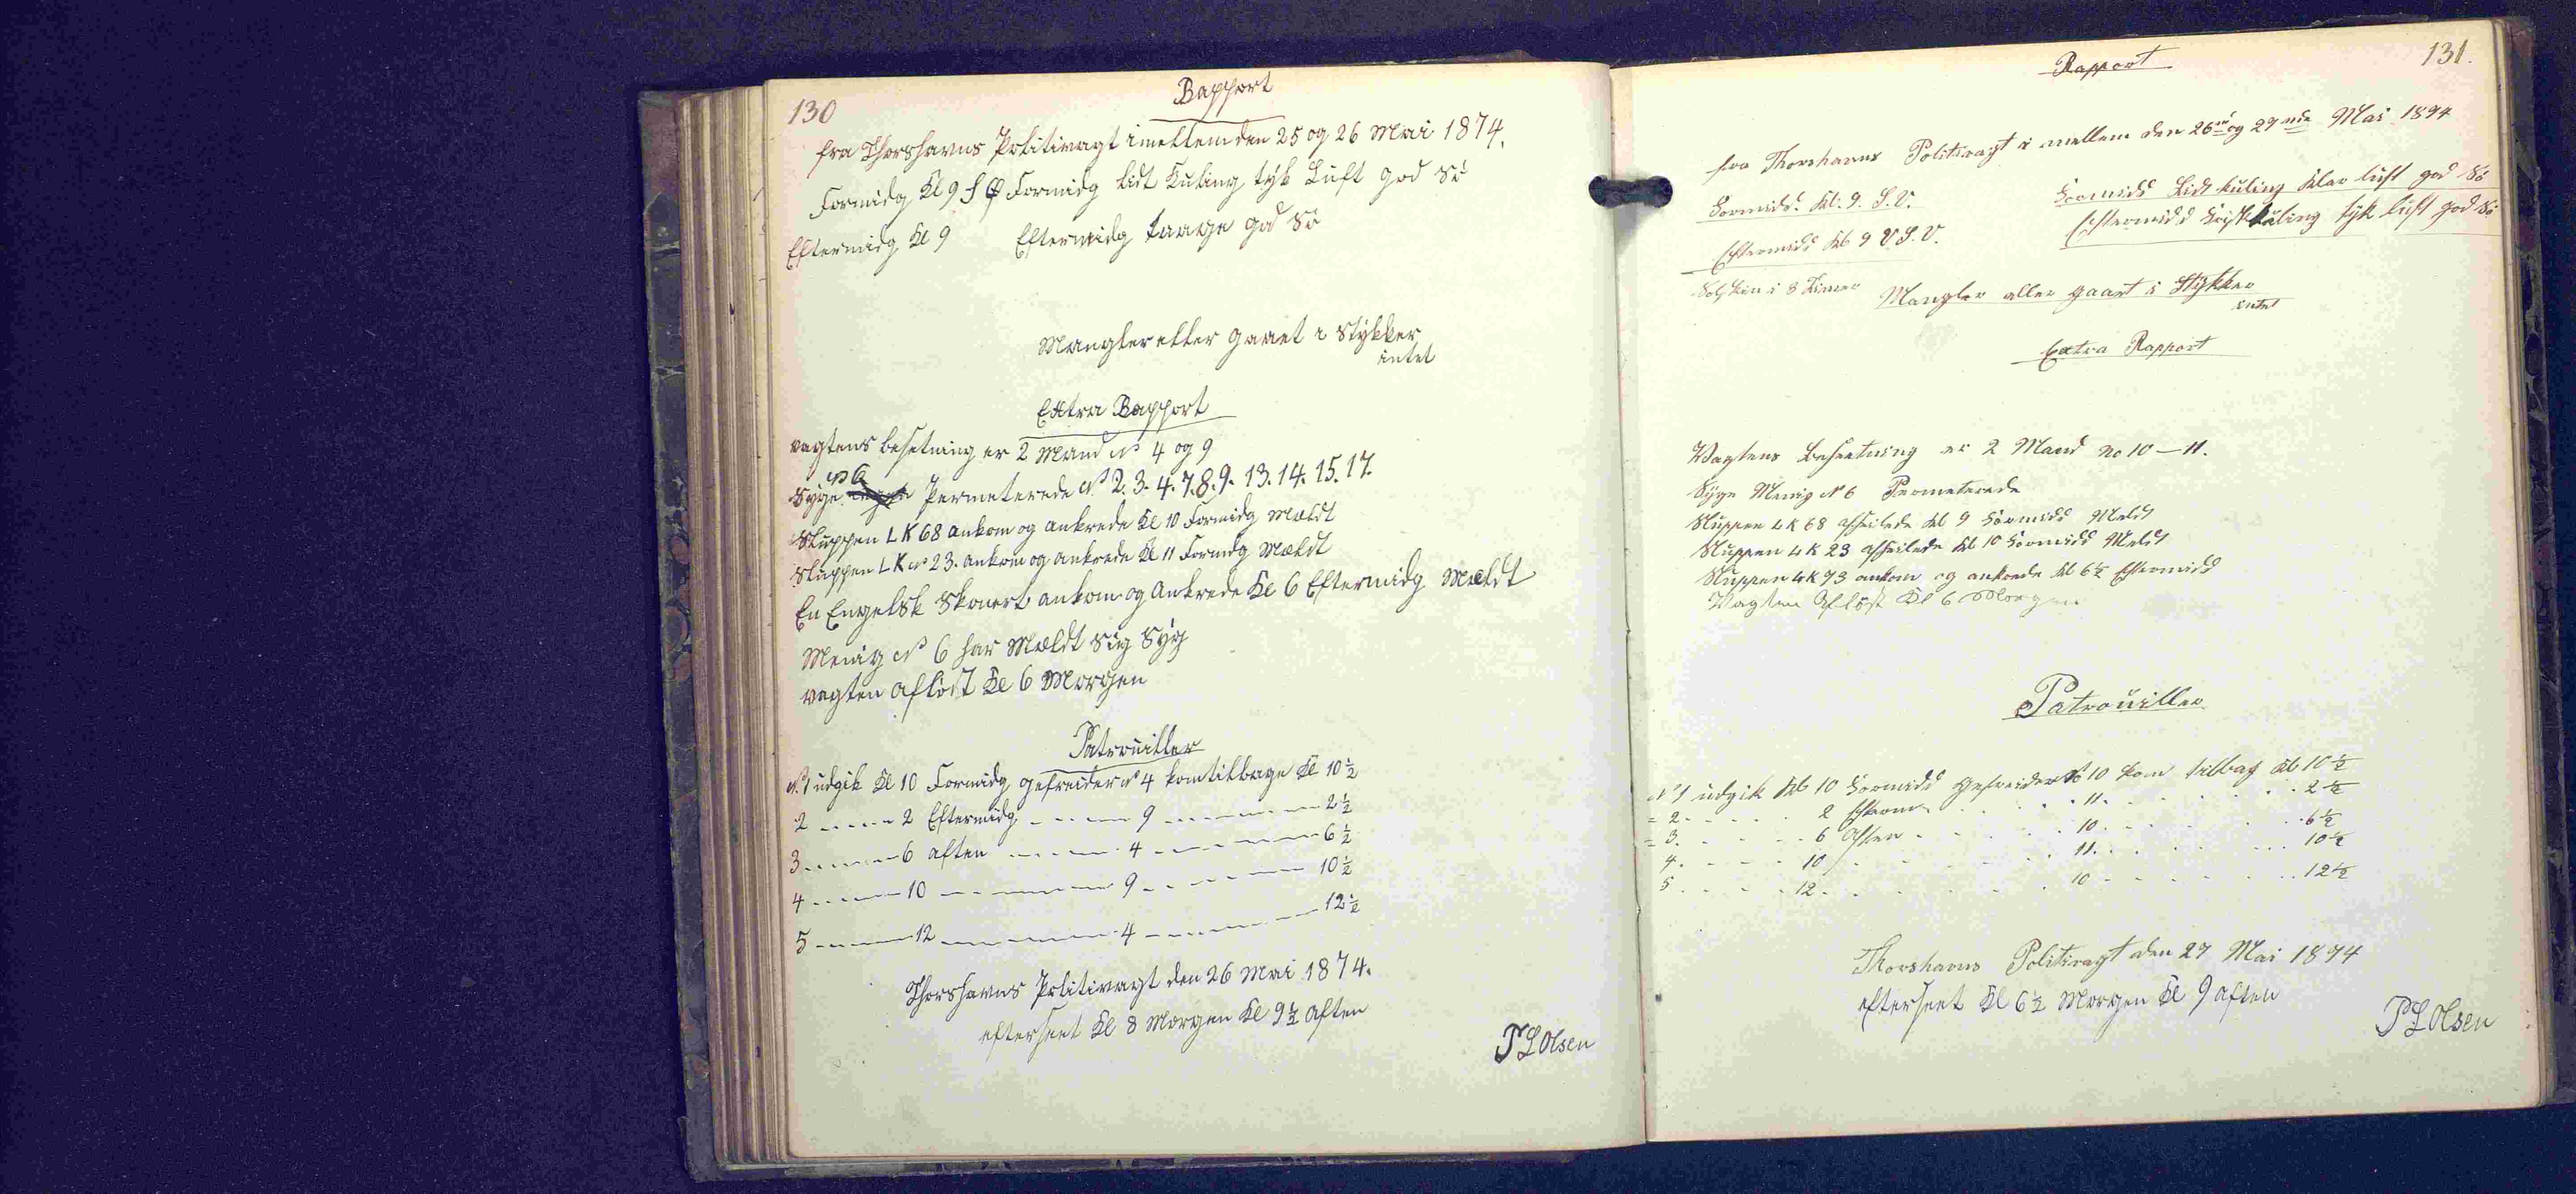 130
Rapport
fra Thorshavns Politivagt imellem den 25 og 26 Mai 1874.
Formidg Kl 9 S Ø Formidg lidt Kuling tyk Luft god Sö
Eftermidg Kl 9 Eftermidg taage god Sö
Mangler eller gaaet i Stykker
intet
Extra Rapport
vagtens besetning er 2 Mand No 4 og 9
No 6
Syge Permeterede No 2. 3. 4. 7. 8. 9. 13. 14. 15. 17.
Sluppen L K 68 ankom og ankrede Kl 10 Formidg Mældt
Sluppen L K No 23. ankom og ankrede Kl 11 Formdg Mældt
En Engelsk Skonert ankom og Ankrede Kl 6 Eftermidg Mældt
Menig No 6 har Mældt sig Syg
vagten aflöst Kl 6 Morgen
Patrouiller
No 1 udgik Kl 10 Formidg gefreider No 4 kom tilbage Kl 10 ½
2 - - - - 2 Eftermidg - - - - 9 - - - - - - 2 ½
3 - - - - 6 aften - - - - 4 - - - - - - 6 ½
4 - - - - 10 - - - - - - 9 - - - - - - 10 ½
5 - - - - 12 - - - - - - 4 - - - - - - 12 ½
Thorshavns Politivagt den 26 Mai 1874.
efterseet Kl 8 Morgen Kl 9 ½ aften
P L Olsen
131.
Rapport
fra Thorshavns Politivagt i mellem den 26 og 27 Mai 1874
Formidd. Kl. 9. S. V. Formidd Lidt kuling klar luft god Sö
Eftermidd Kl 9 V S. V. Eftermidd Frisk kuling tyk luft god Sö
Solskin i 8 Timer Mangler eller gaaet i Stykker
intet
Extra Rapport
Vagtens Besætning er 2 Mand no 10 - 11.
Syge Menig No 6 Permeterede
Sluppen L K 68 afseilede Kl 9 Formidd Meldt
Sluppen L K 23 afseilede Kl 10 Formidd Meldt
Sluppen L K 73 ankom og ankrede Kl 6 ½ Eftermidd
Vagten Aflöst Kl 6 Morgen
Patrouiller
No 1 udgik Kl 10 Formidd gefreider No 10 kom tilbag Kl 10 ½
= 2. - - - - 2 Efterm - - - - 11. - - - - 2 ½
= 3. - - - - 6 Aften - - - - 10. - - - - 6 ½
4. - - - - 10 - - - - 11. - - - - 10 ½
5 - - - - 12. - - - - 10 - - - - 12 ½
Thorshavns Politivagt den 27 Mai 1874
efterseet Kl 6 ½ Morgen Kl 9 aften
P L Olsen